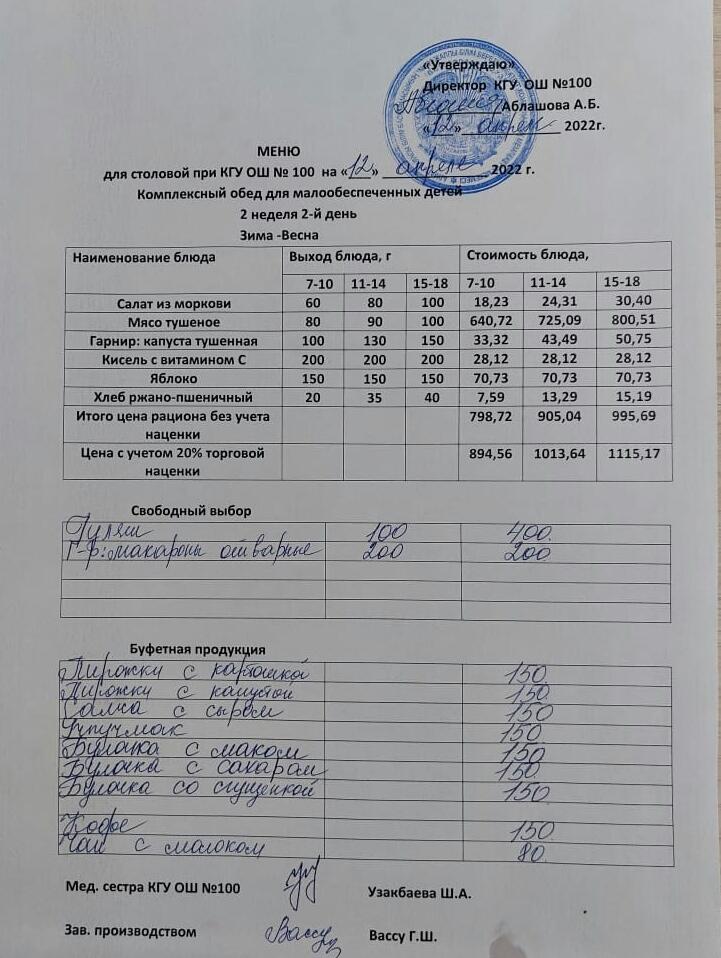 «Утверждаю»
Директор КГУ ОШ №100
Аблашова А.Б.
«12» апрель 2022г.
МЕНЮ
для столовой при КГУ ОШ № 100 на «12» апреле 2022 г.
Комплексный обед для малообеспеченных детей
2 неделя 2-й день
Зима -Весна
Наименование блюда Выход блюда, г Стоимость блюда,
7-10 11-14 15-18 7-10 11-14 15-18
Салат из моркови 60 80 100 18,23 24,31 30,40
Мясо тушеное 80 90 100 640,72 725,09 800,51
Гарнир: капуста тушенная 100 130 150 33,32 43,49 50,75
Кисель с витамином С 200 200 200 28,12 28,12 28,12
Яблоко 150 150 150 70,73 70,73 70,73
Хлеб ржано-пшеничный 20 35 40 7,59 13,29 15,19
Итого цена рациона без учета 798,72 905,04 995,69
наценки
Цена с учетом 20% торговой 894,56 1013,64 1115,17
наценки
Свободный выбор
Гуляш 100 400.
Г-р: макароны отварные 200 200
Буфетная продукция
Пирожки с картошкой 150.
Пирожки с капустой 150.
Самса с сыром 150
Учпучмак 150
Булочка с маком 150
Булочка с сахаром 150.
Булочка со сгущенкой 150
Кофе 150.
Чай с молоком 80.
Мед. сестра КГУ ОШ №100 Узакбаева Ш.А.
Зав. производством Вассу Вассу Г.Ш.